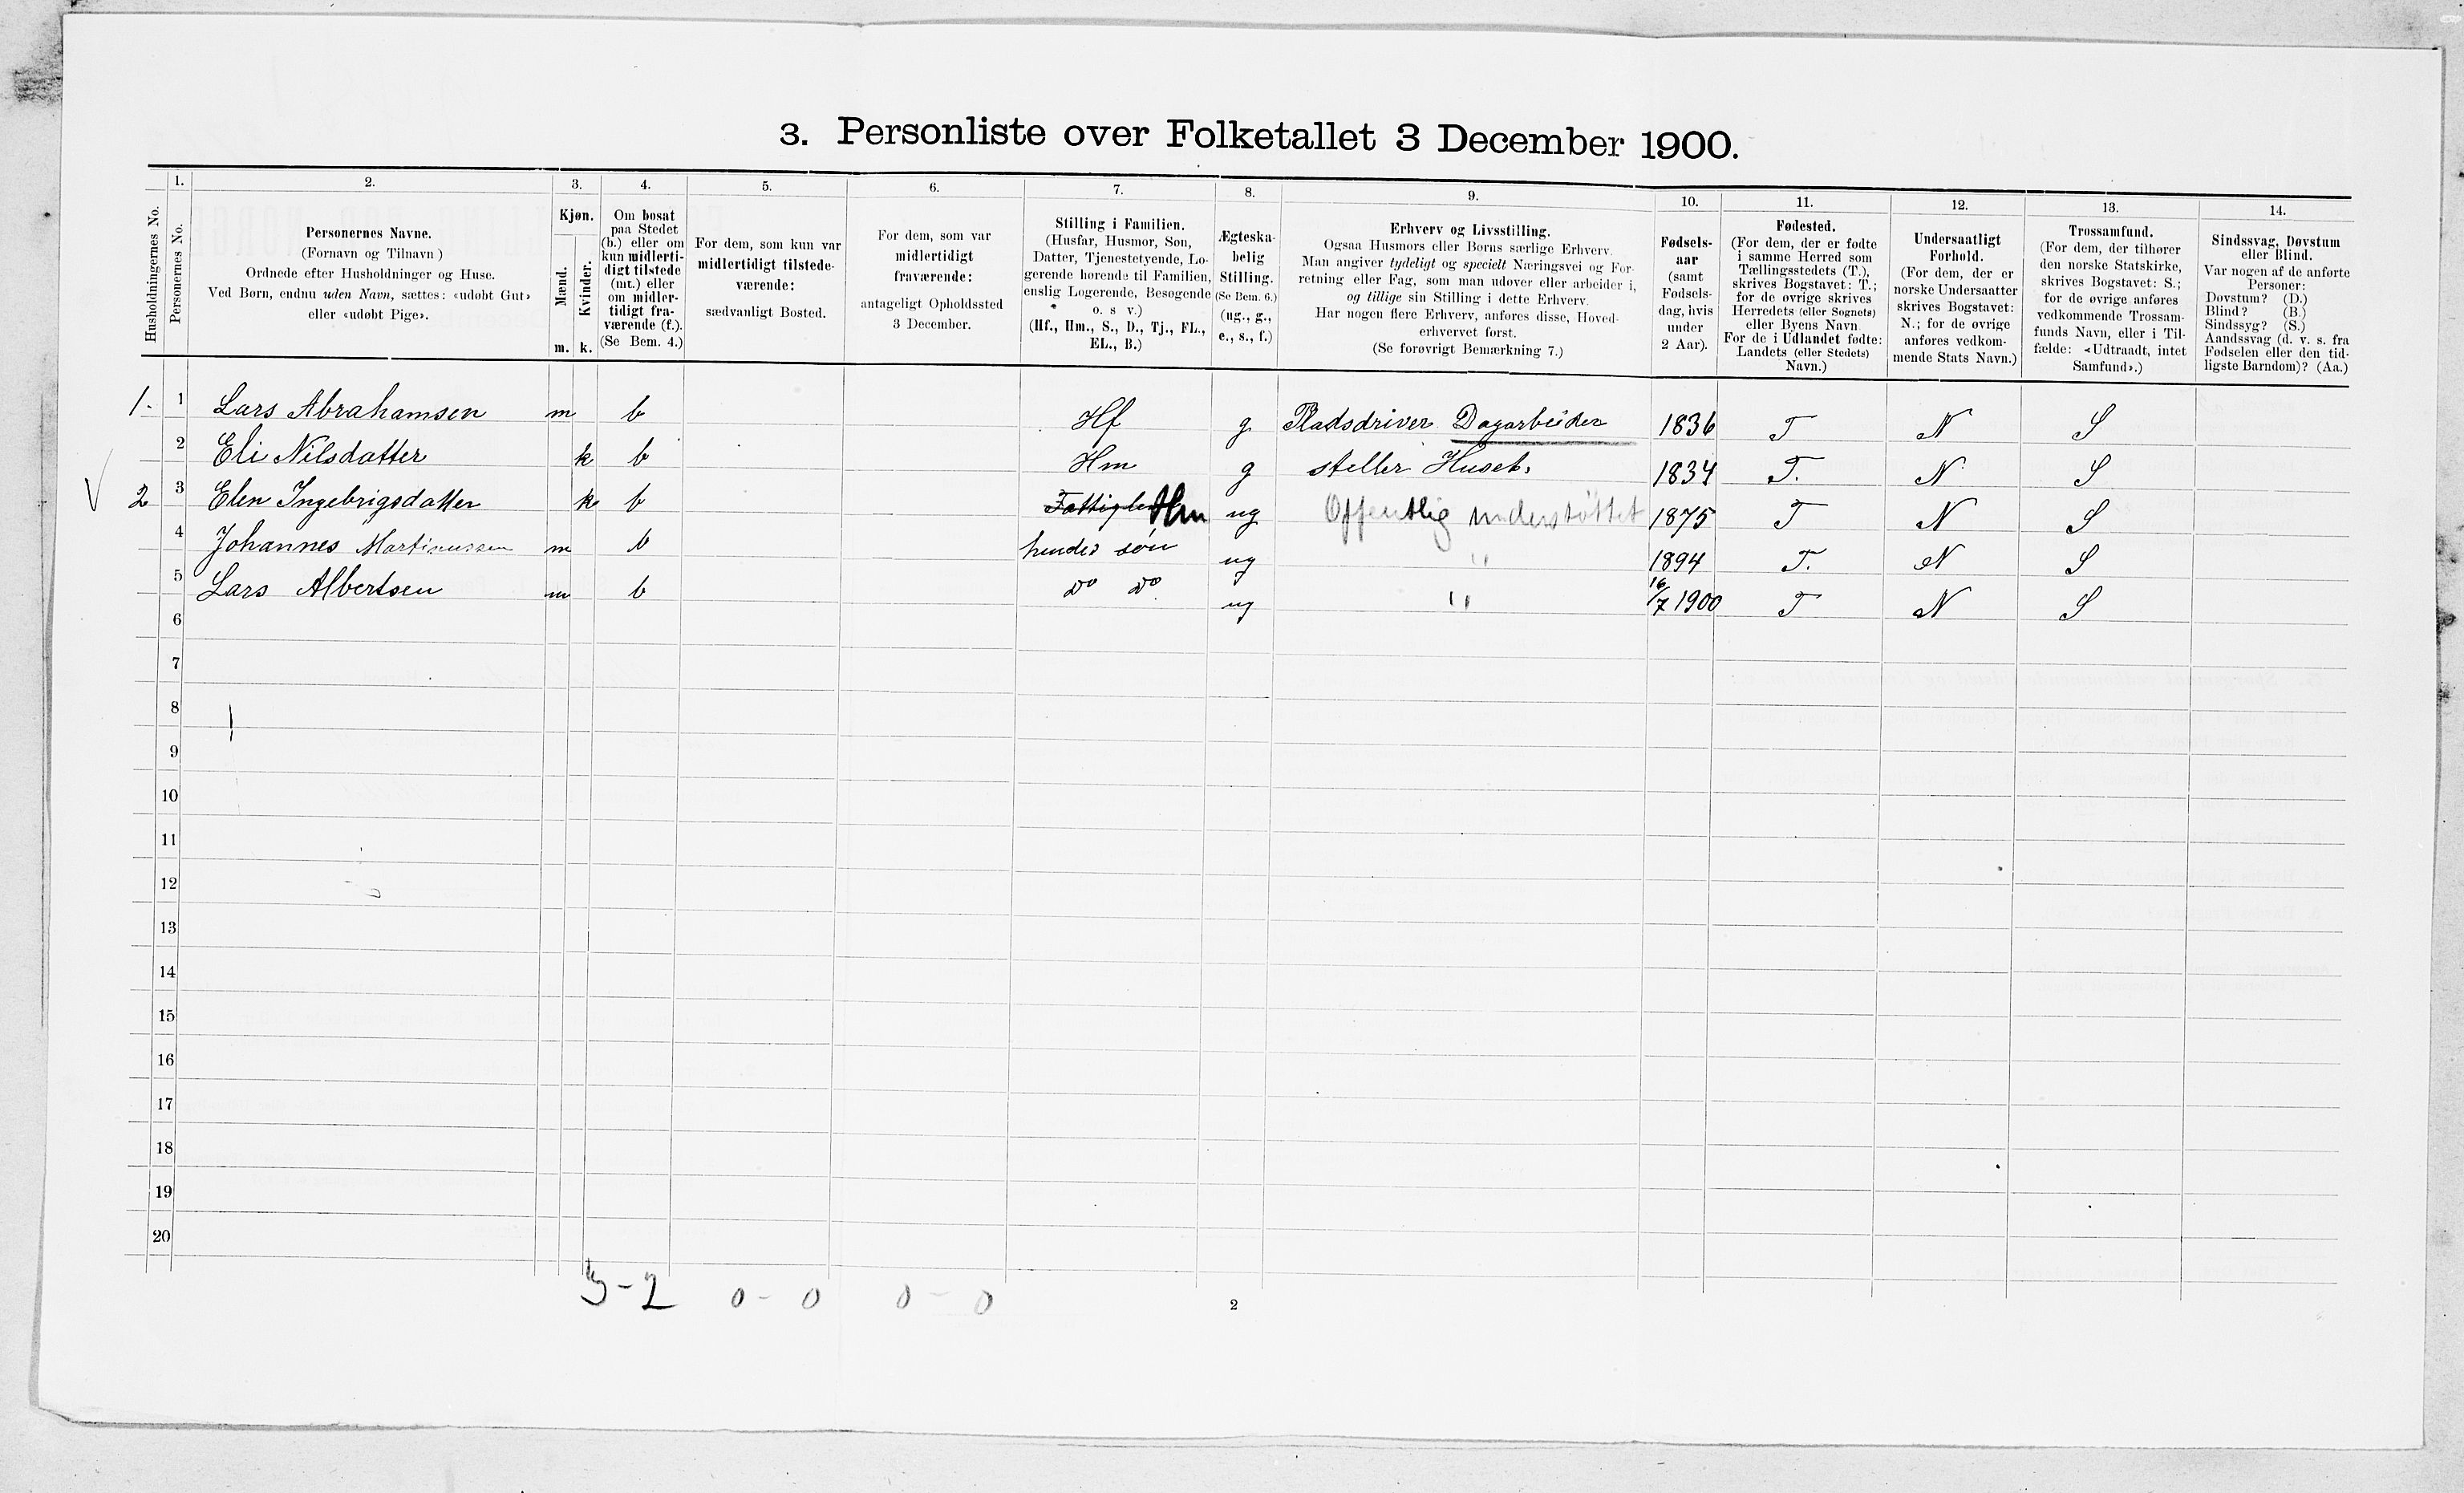 3. Personliste over Folketallet 3 December 1900.
1. 2. 3. 4. 5. 6. 7. 8. 9. 10. 11. 12. 13. 14.
Husholdningernes No.
Personernes No.
Personernes Navne.
(Fornavn og Tilnavn )
Ordnede efter Husholdninger og Huse.
Ved Børn, endnu uden Navn, sættes: «udøbt Gut»
eller «udøbt Pige».
Kjøn.
Mænd.
Kvinder.
m. k.
Om bosat
paa Stedet
(b.) eller om
kun midlerti-
digt tilstede
(mt.) eller
om midler-
tidigt fra-
værende (f.).
(Se Bem. 4.)
For dem, som kun var
midlertidigt tilstede-
værende:
sædvanligt Bosted.
For dem, som var
midlertidigt
fraværende:
antageligt Opholdssted
3 December.
Stilling i Familien.
(Husfar, Husmor, Søn,
Datter, Tjenestetyende, Lo-
gerende hørende til Familien,
enslig Logerende, Besøgende
o. s v.)
(Hf., Hm., S., D., Tj., FL.,
EL., B.)
Ægteska-
belig
Stilling.
(Se Bem. 6.)
(ug., g.,
e., s., f.)
Erhverv og Livsstilling.
Ogsaa Husmors eller Børns særlige Erhverv.
Man angiver tydeligt og specielt Næringsvei og For-
retning eller Fag, som man udøver eller arbeider i,
og tillige sin Stilling i dette Erhverv.
Har nogen flere Erhverv, anføres disse, Hoved-
erhvervet først.
(Se forøvrigt Bemærkning 7.)
Fødsels-
aar
(samt
Fødsels-
dag, hvis
under
2 Aar).
Fødested.
(For dem, der er fødte
i samme Herred som
Tællingsstedets (T.),
skrives Bogstavet: T.;
for de øvrige skrives
Herredets (eller Sognets)
eller Byens Navn
For de i Udlandet fødte:
Landets (eller Stedets)
Navn.)
Undersaatligt
Forhold.
(For dem, der er
norske Undersaatter
skrives Bogstavet:
N.; for de øvrige
anføres vedkom-
mende Stats Navn.)
Trossamfund.
(For dem, der tilhører
den norske Statskirke,
skrives Bogstavet: S.;
for de øvrige anføres
vedkommende Trossam-
funds Navn, eller i Til-
fælde: «Udtraadt, intet
Samfund».)
Sindssvag, Døvstum
eller Blind.
Var nogen af de anførte
Personer:
Døvstum? (D.)
Blind? (B.)
Sindssyg? (S.)
Aandssvag (d. v. s. fra
Fødselen eller den tid-
ligste Barndom)? (Aa.)
1. 1 Lars Abrahamsen m b Hf g Pladsdriver Dagarbeider 1836 T N S
2 Eli Nilsdatter k b Hm g steller Huset. 1834 T. N S
V 2 3 Elen Ingebrigsdatter k b Hm ug Offentlig understøttet 1875 T N S
4 Johannes Martinussen m b hendes søn ug " 1894 T. N S
5 Lars Albertsen m b do do ug " 16/7 1900 T N S
6
7
8
9
10
11
12
13
14
15
16
17
18
19
20
5-2 0-0 0-0
2